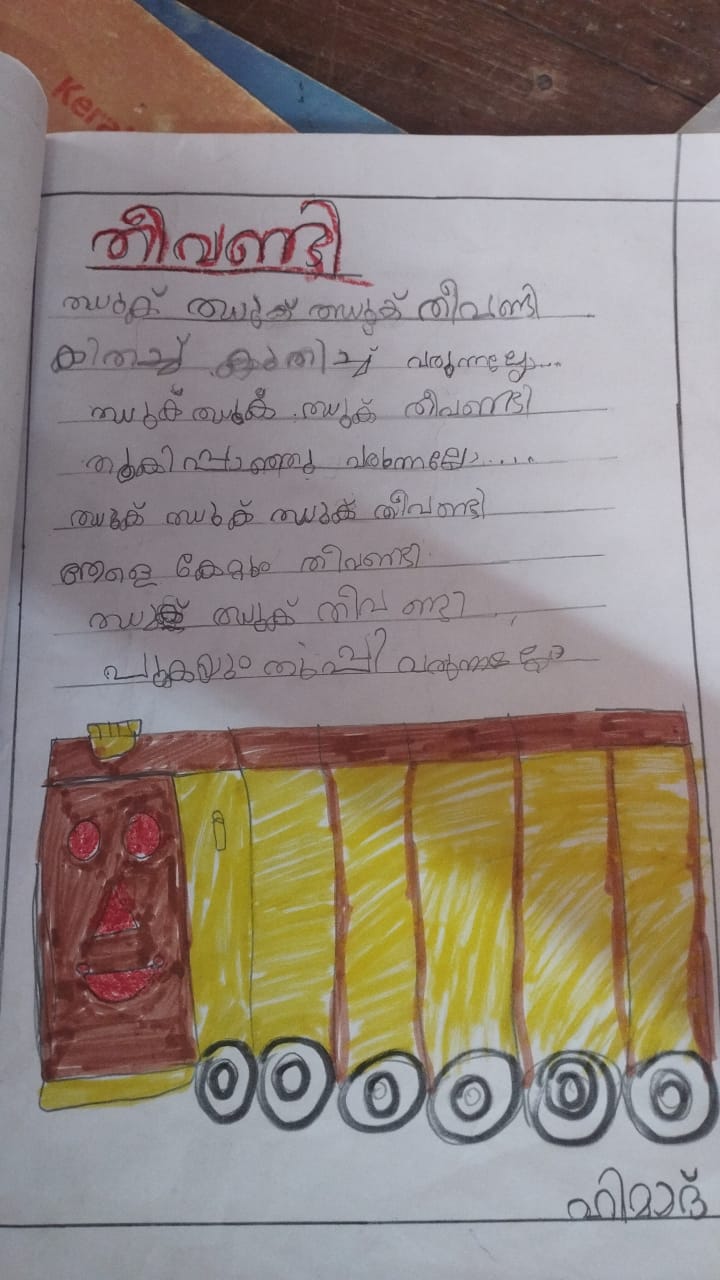 Keral
തീവണ്ടി
ഝുക് ഝുക് ഝുക് തീവണ്ടി
കിതച്ച് കുതിച്ച് വരുന്നല്ലോ....
ഝുക് ഝുക് ഝുക് തീവണ്ടി
വരുന്നല്ലോ.....
ഝുക് ഝുക് ഝുക് തീവണ്ടി
ആളെ കേറ്റും തീവണ്ടി
ഝുക് ഝുക് തീവണ്ടി
പുകയും തുപ്പി വരുന്നല്ലോ
ഹിമാദ്